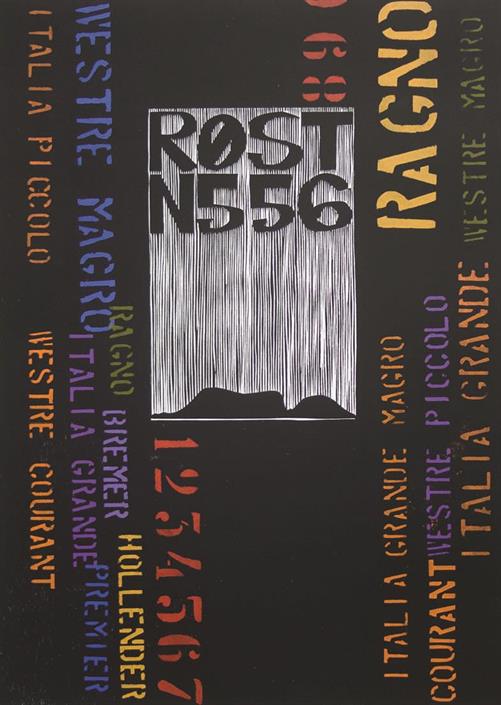 ITALIA PICCOLO
WESTRE COURANT
WESTRE MAGRO
ITALIA GRANDE
PREMIER
RAGNO
BREMER
HOLLENDER
1234567
68
RØST
N556
RAGNO
WESTRE MAGRO
ITALIA GRANDE MAGRO
WESTRE PICCOLO
COURANT
ITALIA GRANDE